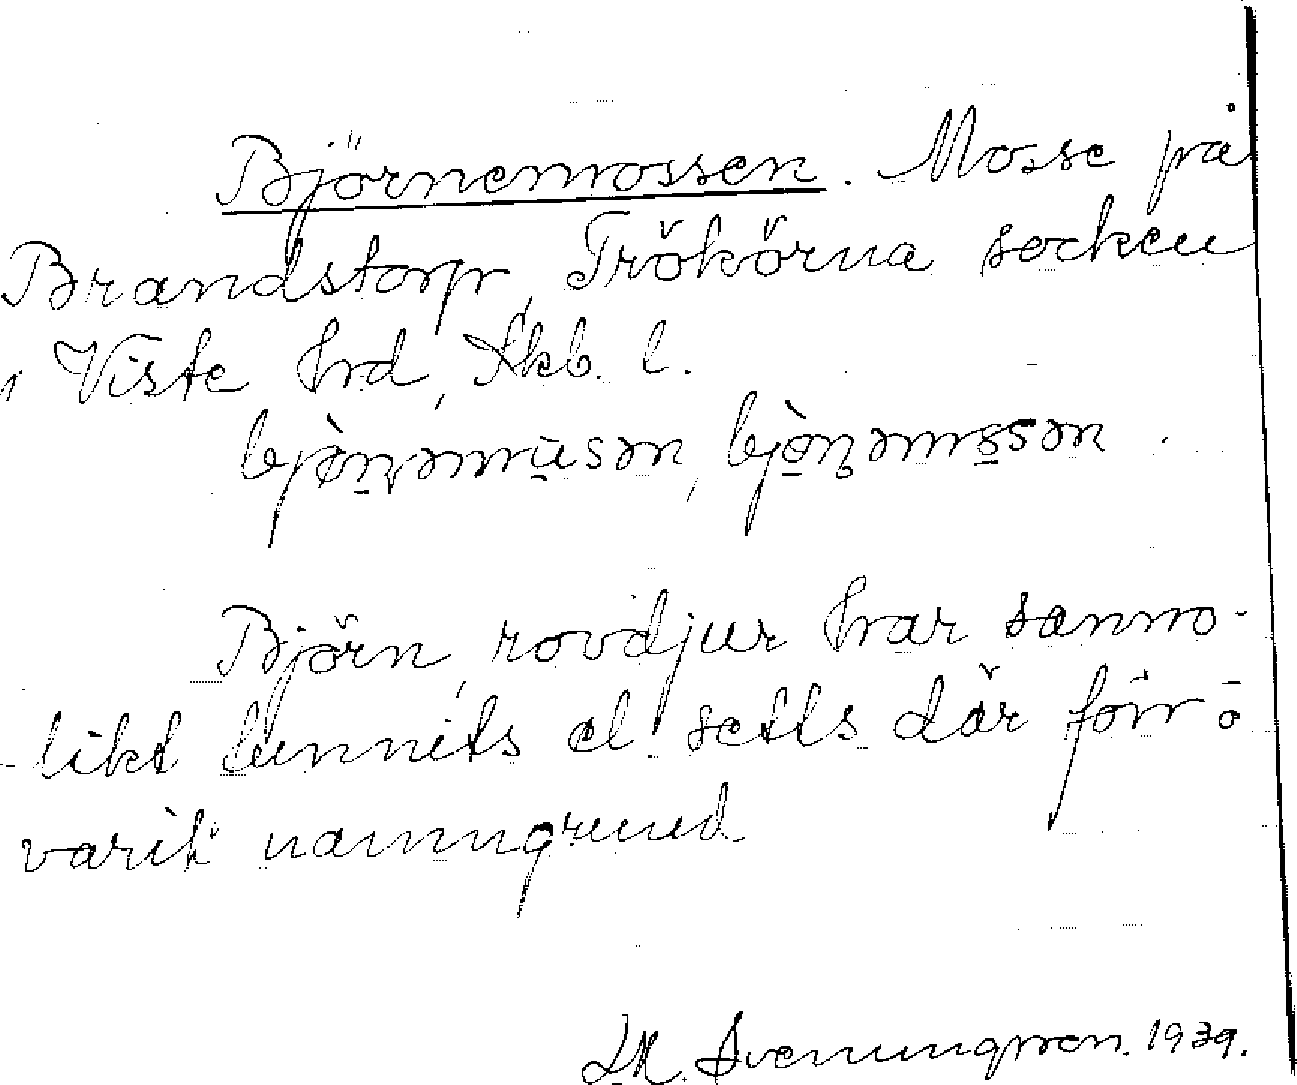 Björnemossen. Mosse på
Brandstorp, Trökörna socken
i Viste hrd, Skb. l.
bjö̀ṇəmusən, bjö̀ṇəmosən.
Björn, rovdjur har sanno-
likt funnits el. setts där förr o
varit namngrund
Svenungsson. 1939.